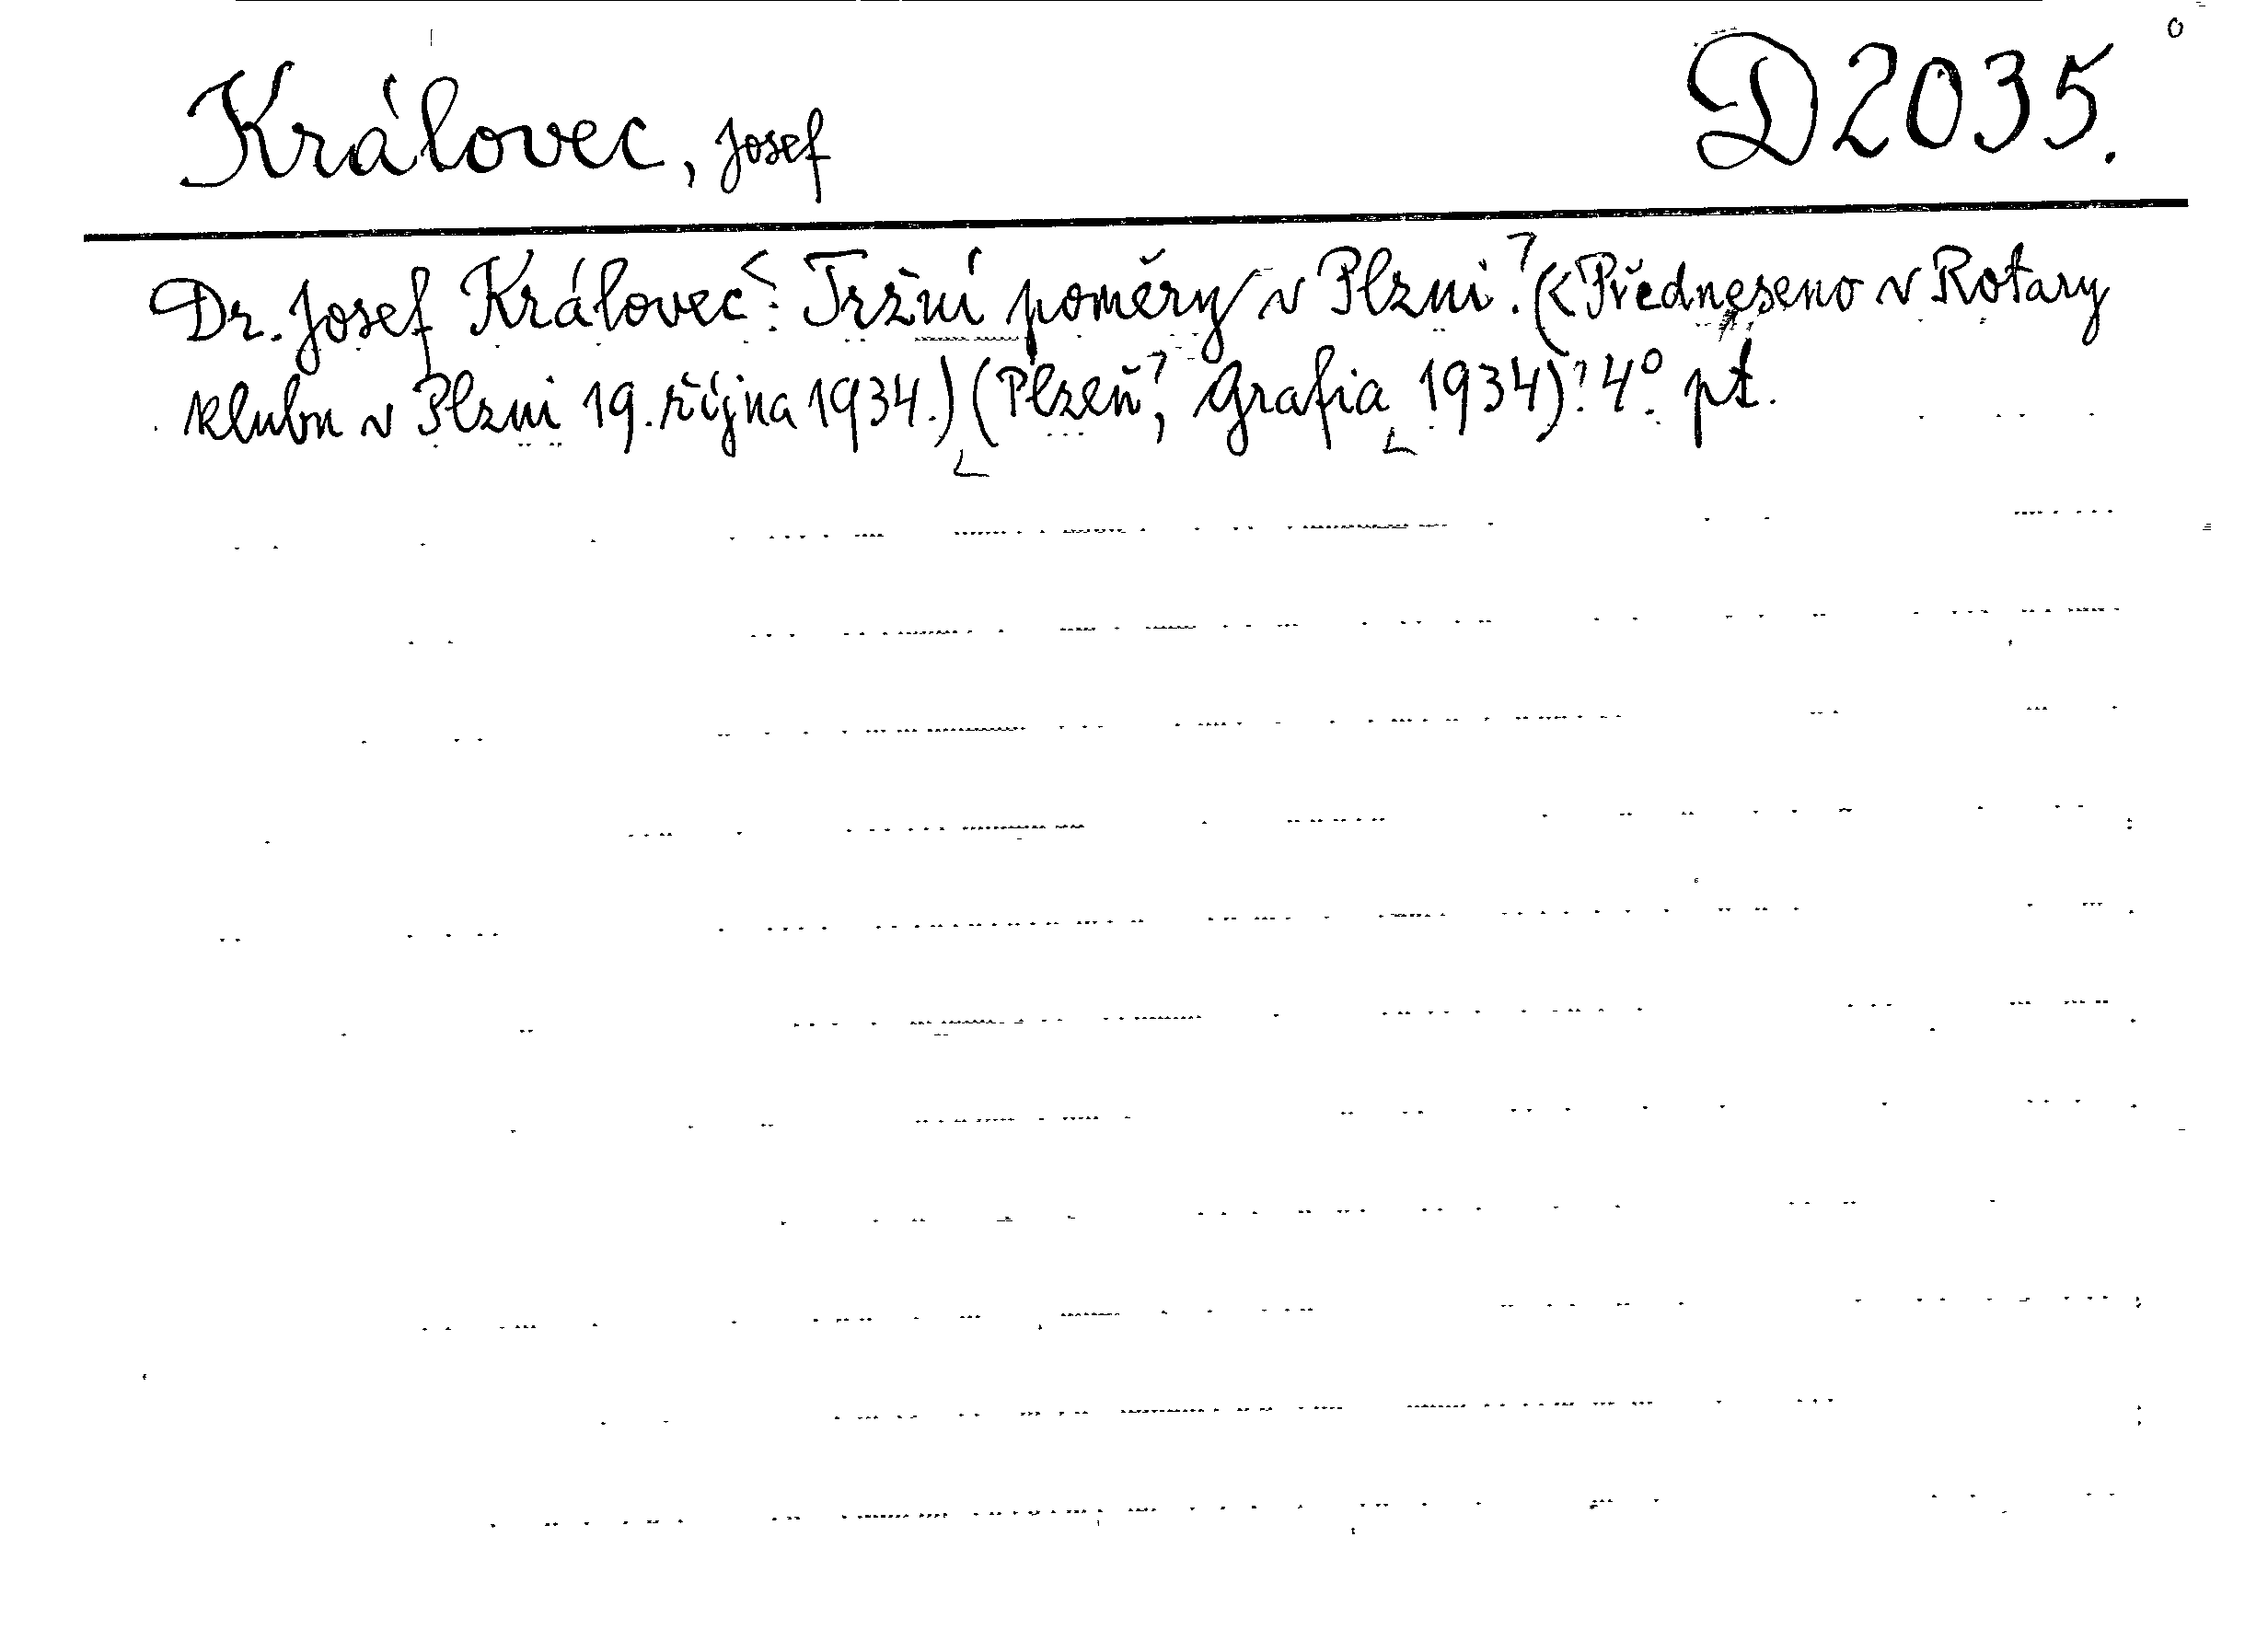 Královec, Josef D 2035.
Dr. Josef Královec: Tržní poměry v Plzni. (Předneseno v Rotary
klubu v Plzni 19. října 1934.) (Plzeň, Grafia 1934). 4° pt.